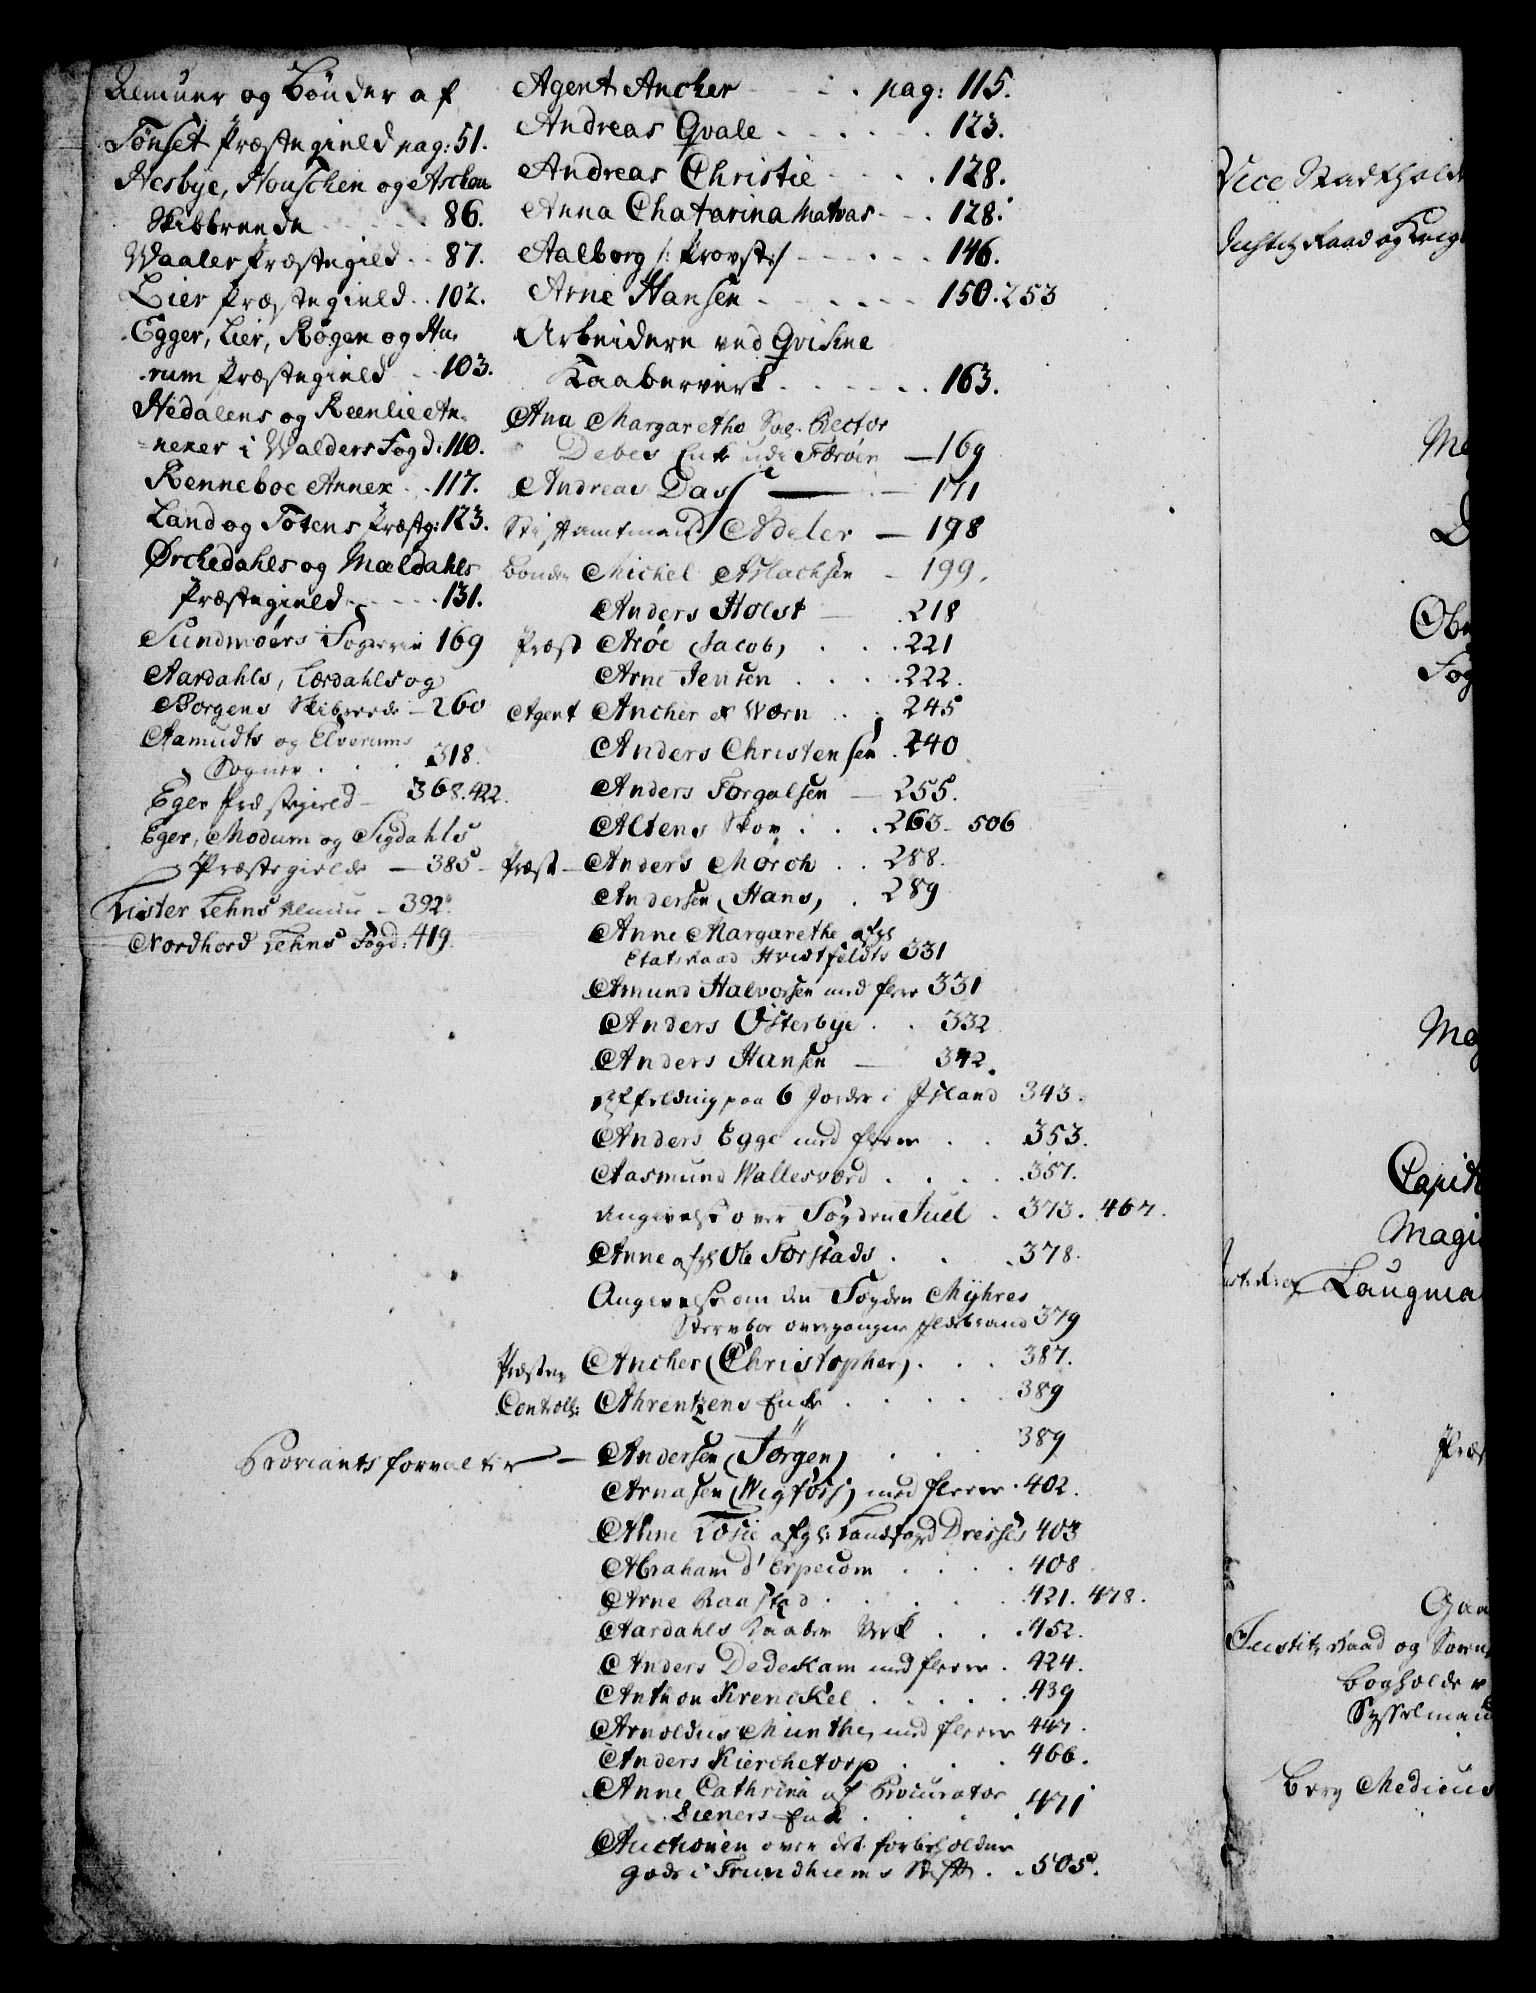 Almuer og Bönder af
Tönset Præstegield pag: 51.
Nesbye, Houschen og Aschou
Skibbreede 86.
Waaler Præstegield 87.
Lier Præstegield 102.
Egger, Lier, Røgen og Hu-
rum Præstegield 103.
Hedalens og Reenlie An-
nexer i Walders Fogd. 110.
Renneboe Annex 117.
Land og Totens Præstg: 123.
Ørchedahls og Mældahls
Præstegield 131.
Sundmöers Fogderie 169
Aardahls, Lærdahls og
Borgens Skibreede 260
Aamudts og Elverums
Sogner 318.
Eger Præstegield 368. 422.
Eger, Modum og Sigdahls
Præstegielde 385
Lister Lehns Almue 392.
Nordhord Lehns Fogd: 419.
Agent Ancher pag: 115.
Andreas Qvale 123.
Andreas Christie 128.
Anna Chatarina Matvas 128.
Aalborg /: Provst :/ 146.
Arne Hansen 150. 253
Arbeidere ved Qvikne
Kaaberverk 163.
Ana Margaretha Sal. Rector
Debes Enke udi Færöen 169
Andreas Dass 171
Stiftamtmand Adeler 198
Bonden Michel Aslachsen 199.
Anders Holst 218
Præst Aröe (Jacob) 221
Arne Jensen 222.
Agent Ancher & Wærn 245
Anders Christensen 240
Anders Torgalsen 255.
Altens Skov 263 506
Præst Anders Mörch 288.
Andersen (Hans) 289
Anne Margarethe afgl
Etatsraad Hvidtfeldts 331
Amund Halvorsen med flere 331
Anders Österbye 332
Anders Hansen 342.
Affælding paa 6 Jorder i Island 343.
Anders Egge med flere 353.
Aasmund Wallesværd 357.
Angivelse over Fogden Juel 373. 467.
Anne afgl Ole Forstads 378.
Angivelse om den Fogden Myhres
Stervboe overgangne Ildebrand 379
Præsten Ancher (Christopher) 387.
Controll: Ahrentzens Enke 389
Proviantsforvalter Andersen (Jörgen) 389
Arnasen (Wigfös) med flere 402.
Anne Losie afgl: Landfogd Dreises 403
Abraham d'Erpecom 408
Arne Raastad 421. 478.
Aardahls Kaaber Verk 452.
Anders Dedekam med flere 424.
Anthon Krenckel 439
Arnoldus Munthe, med flere 447.
Anders Kierchetorp 466.
Anne Cathrina af Procurator
Lieners Enke 471
Auctionen over det forbeholdne
gods i Trundhiems Stift 505.
Vice Stadthold
Justitz Raad og Krigs
Ma
D
Obe
Fog
Mag
Capit
Magi
Laugma
Præs
Gaa
Justitz Raad og Soren
Bogholder
Sysselmand
Berg Medicus